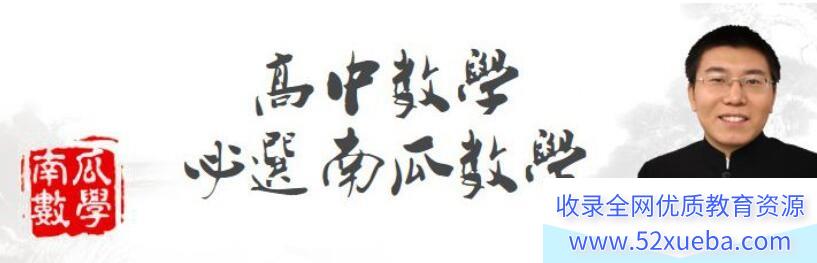 高中數學
必選南瓜數學
南瓜
數學
收录全网优质教育资源
www.52xueba.com